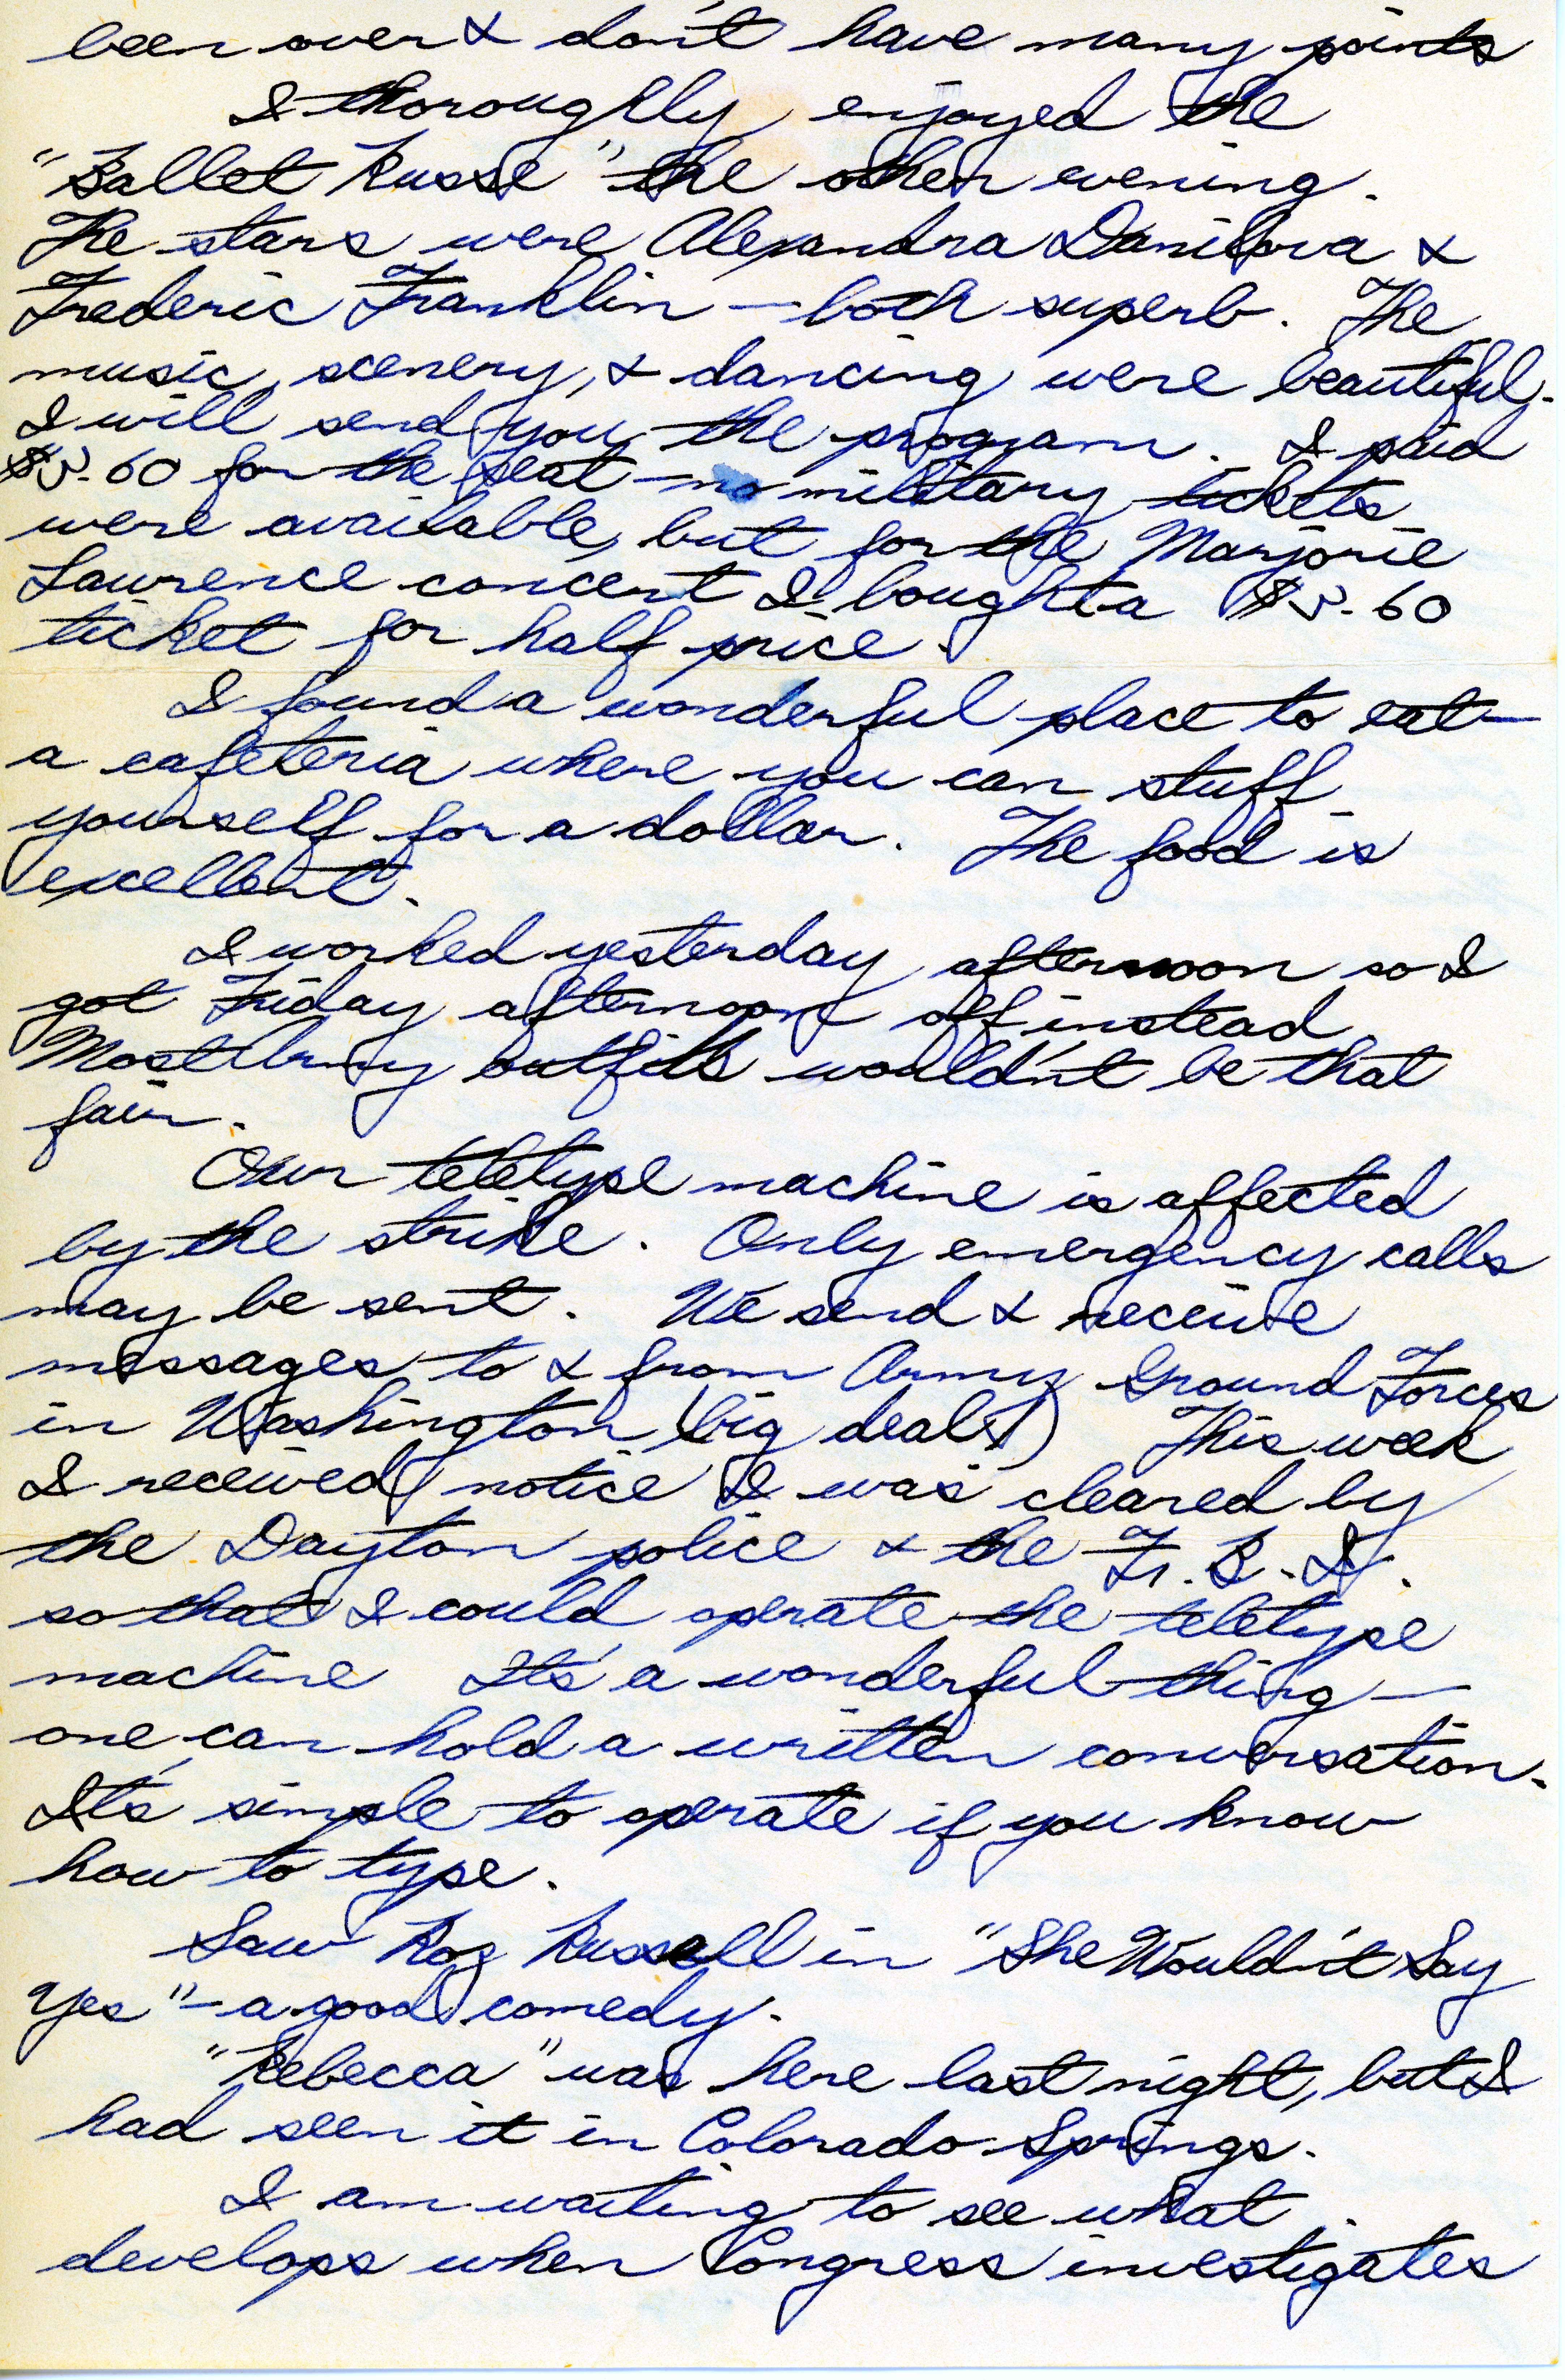 been over & don't have many points
I thoroughly enjoyed the
"Ballet Russe" the other evening.
The stars were Alexandra Danilova &
Frederic Franklin — both superb. The
music, scenery, & dancing were beautiful.
I will send you the program. I paid
$3.60 for the seat — no military tickets
were available, but for the Marjorie
Lawrence concert I bought a $3.60
ticket for half price.
I found a wonderful place to eat —
a cafeteria where you can stuff
yourself for a dollar. The food is
excellent.
I worked yesterday afternoon so I
got Friday afternoon off instead.
Most Army outfits wouldn't be that
fair.
Our teletype machine is affected
by the strike. Only emergency calls
may be sent. We send & receive
messages to & from Army Ground Forces
in Washington (big deal!) This week
I received notice I was cleared by
the Dayton police & the F.B.I.
so that I could operate the teletype
machine It's a wonderful thing —
one can hold a written conversation.
It's simple to operate if you know
how to type.
Saw Roz Russell in "She Wouldn't Say
Yes" — a good comedy.
"Rebecca" was here last night, but I
had seen it in Colorado Springs.
I am waiting to see what
develops when Congress investigates